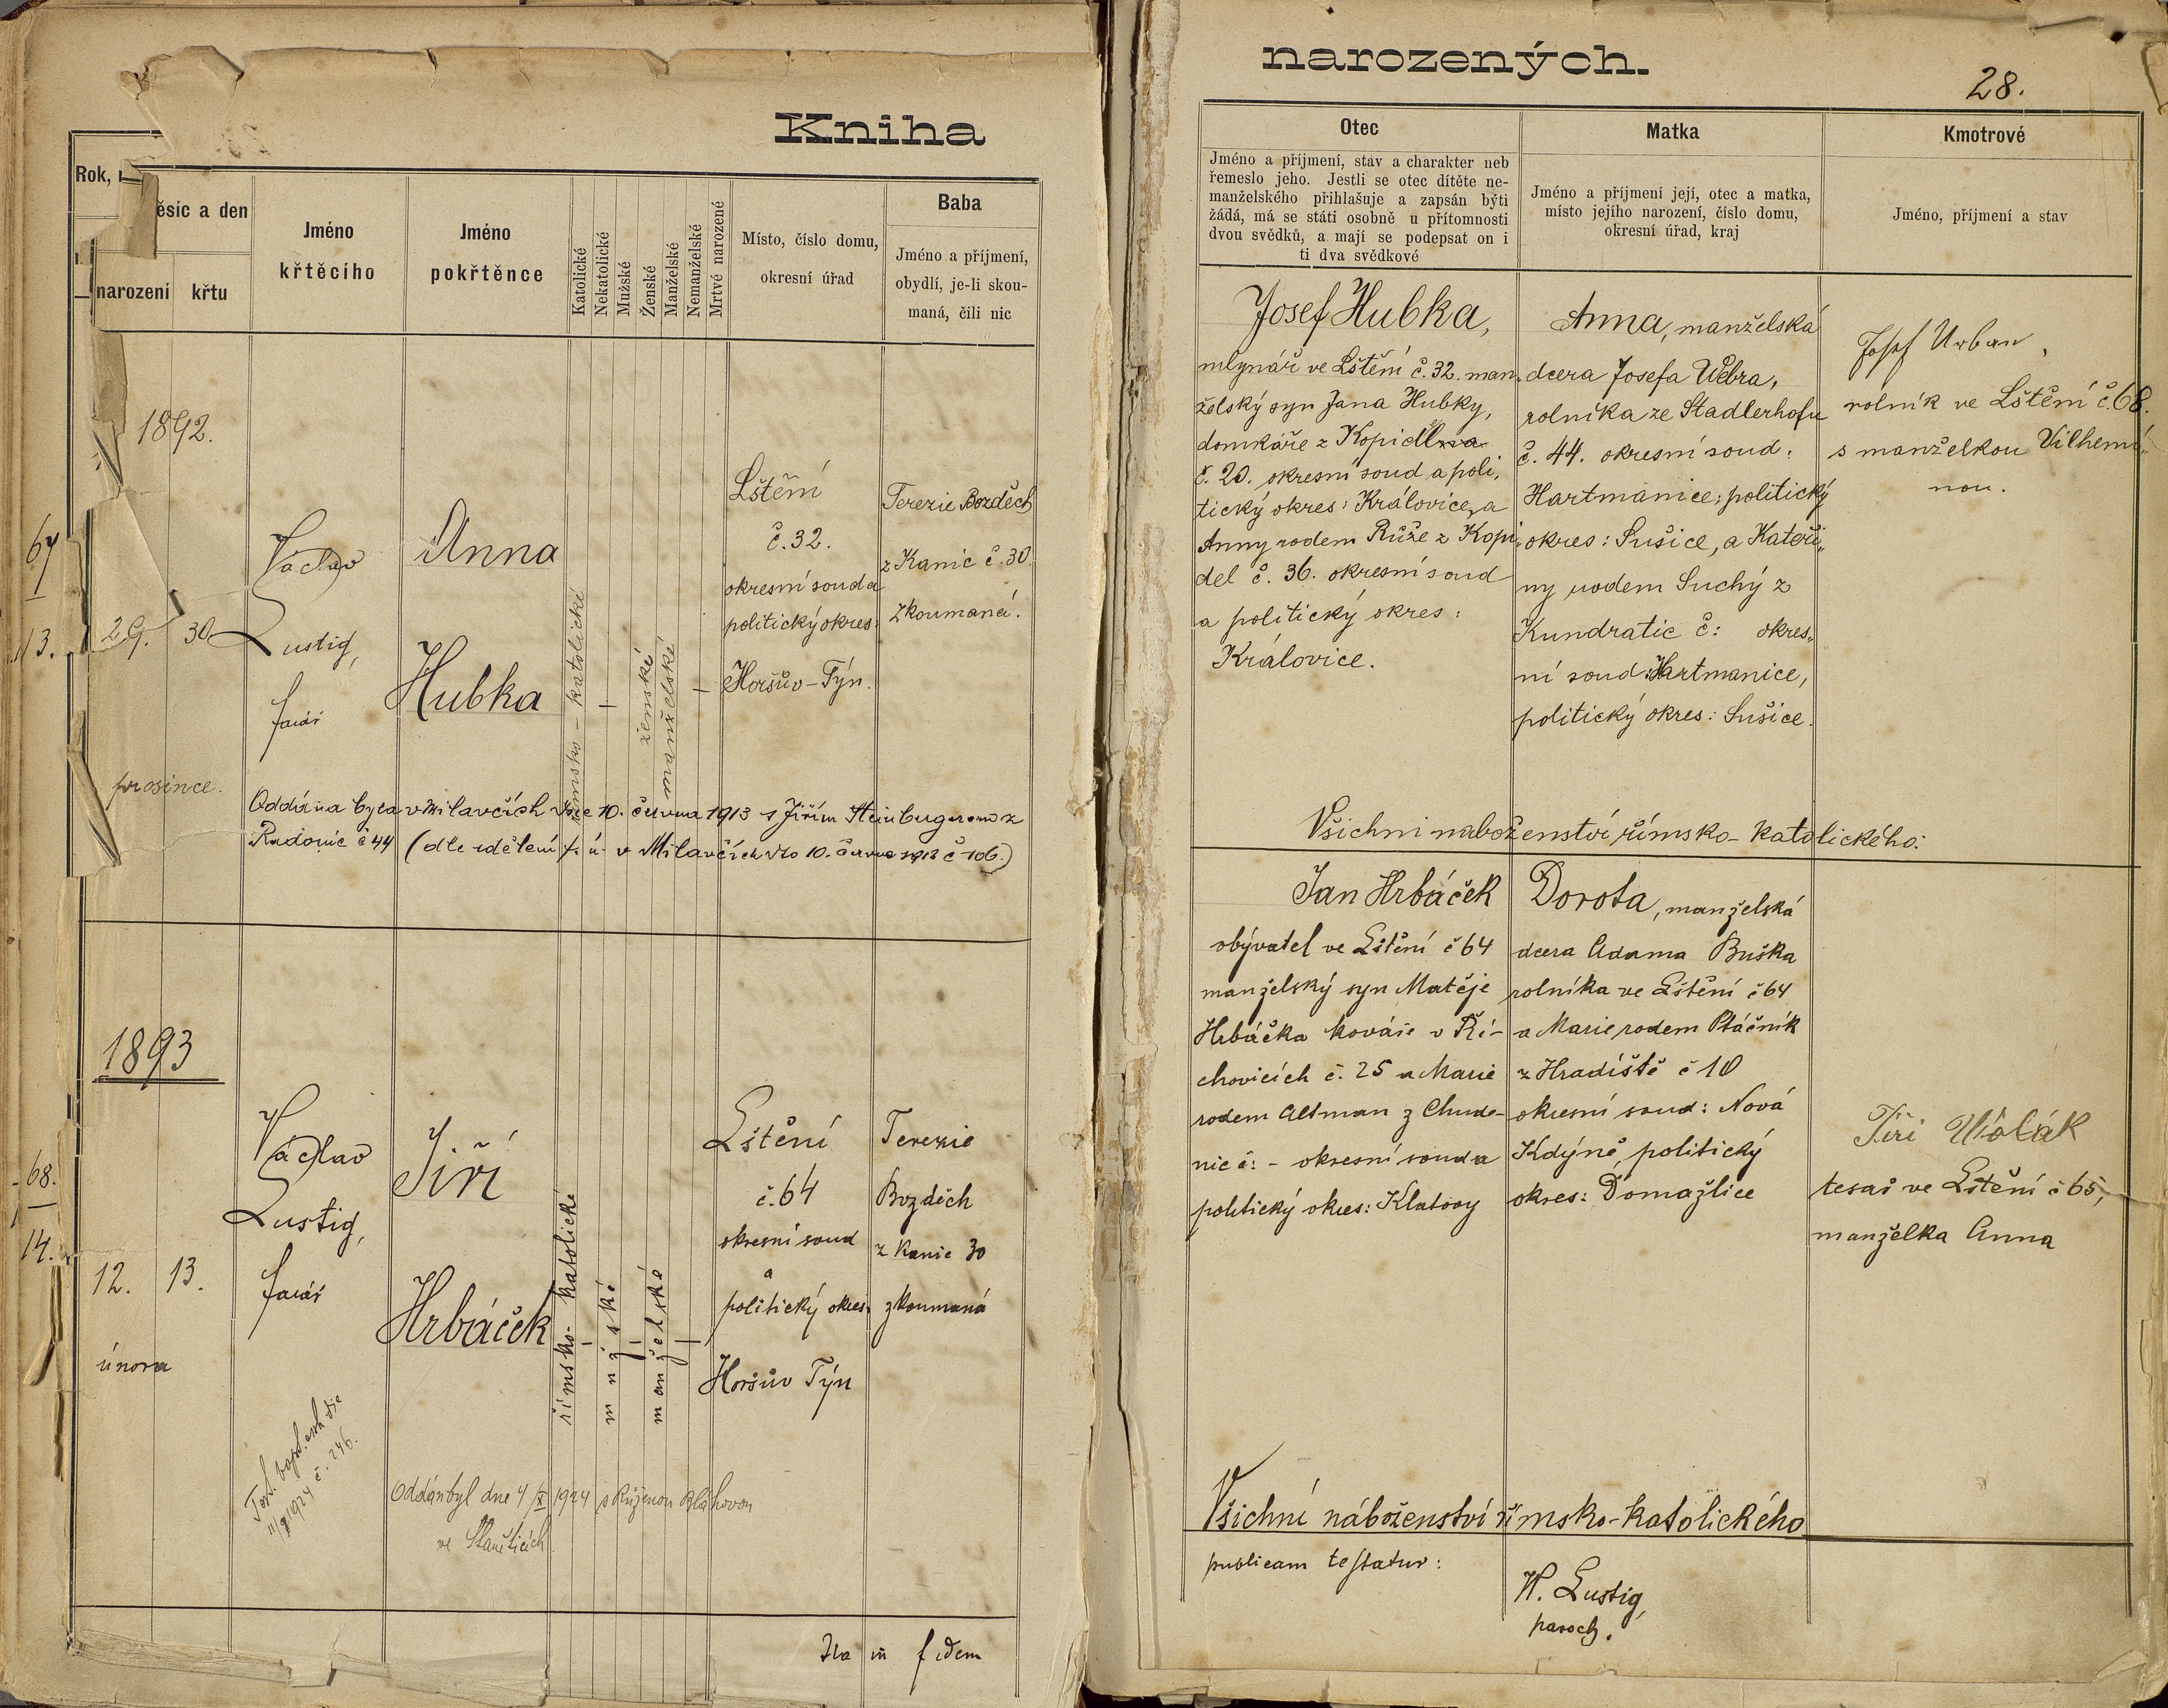 Kniha
Rok, měsíc a den
narození
křtu
Jméno
křtěcího
Jméno
pokřtěnce
Katolické
Nekatolické
Mužské
Ženské
Manželské
Nemanželské
Mrtvé narozené
Místo, číslo domu,
okresní úřad
Baba
Jméno a příjmení,
obydlí, je-li skou-
maná, čili nic
1892.
67
13.
29.
30
prosince.
Václav
Lustig,
farář
Anna
Hubka
římsko-katolické
ženské
manželské
Lštění
č. 32.
okresní soud a
politický okres:
Horšův-Týn.
Terezie Bozděch
z Kanic č. 30.
zkoumaná.
Oddána byla v Milavčích dne 10. června 1913 s Jiřím Steinbugerem z
Radonic č 44 (dle sdělení f. ú. v Milavčích dto 10. června 1913 č 106.)
1893
68.
14.
12.
13.
února
Václav
Lustig,
farář
Jiří
Hrbáček
římsko-katolické
mužské
manželské
Lštění
č. 64
okresní soud
a
politický okres
Horšův Týn
Terezie
Bozděch
z Kanic 30
zkoumaná
Test. bapt. exh die
1924 č. 246.
Oddán byl dne 4/X 1924 s Růženou Bláhovou
ve Staněticích
Ita in fidem
narozených.
28.
Otec
Jméno a příjmení, stav a charakter neb
řemeslo jeho. Jestli se otec dítěte ne-
manželského přihlašuje a zapsán býti
žádá, má se státi osobně u přítomnosti
dvou svědků, a mají se podepsat on i
ti dva svědkové
Matka
Jméno a příjmení její, otec a matka,
místo jejího narození, číslo domu,
okresní úřad, kraj
Kmotrové
Jméno, příjmení a stav
Josef Hubka,
mlynář ve Lštění č. 32. man„
želský syn Jana Hubky,
domkáře z Kopidlna
č. 20. okresní soud a poli„
tický okres: Královice, a
Anny rodem Růže z Kopi„
del č. 36. okresní soud
a politický okres:
Královice.
Anna, manželská
dcera Josefa Webra,
rolníka ze Stadlerhofu
č. 44. okresní soud:
Hartmanice; politický
okres: Sušice, a Kateři„
ny rodem Suchý z
Kundratic č: okres„
ní soud: Hartmanice,
politický okres: Sušice.
Josef Urban,
rolník ve Lštění č. 68.
s manželkou Vilhemí„
nou.
Všichni náboženství římsko-katolického:
Jan Hrbáček
obývatel ve Lštění č 64
manželský syn Matěje
Hrbáčka kováře v Ři-
chovicích č. 25 a Marie
rodem Altman z Chude-
nic č: - okresní soud a
politický okres: Klatovy
Dorota, manželská
dcera Adama Buška
rolníka ve Lštění č 64
a Marie rodem Ptáčník
z Hradiště č 10
okresní soud: Nová
Kdýně politický
okres: Domažlice
Jiří
tesař ve Lštění č 65,
manželka Anna
Všichni náboženství římsko-katolického
publicam testatur:
W. Lustig,
paroch.